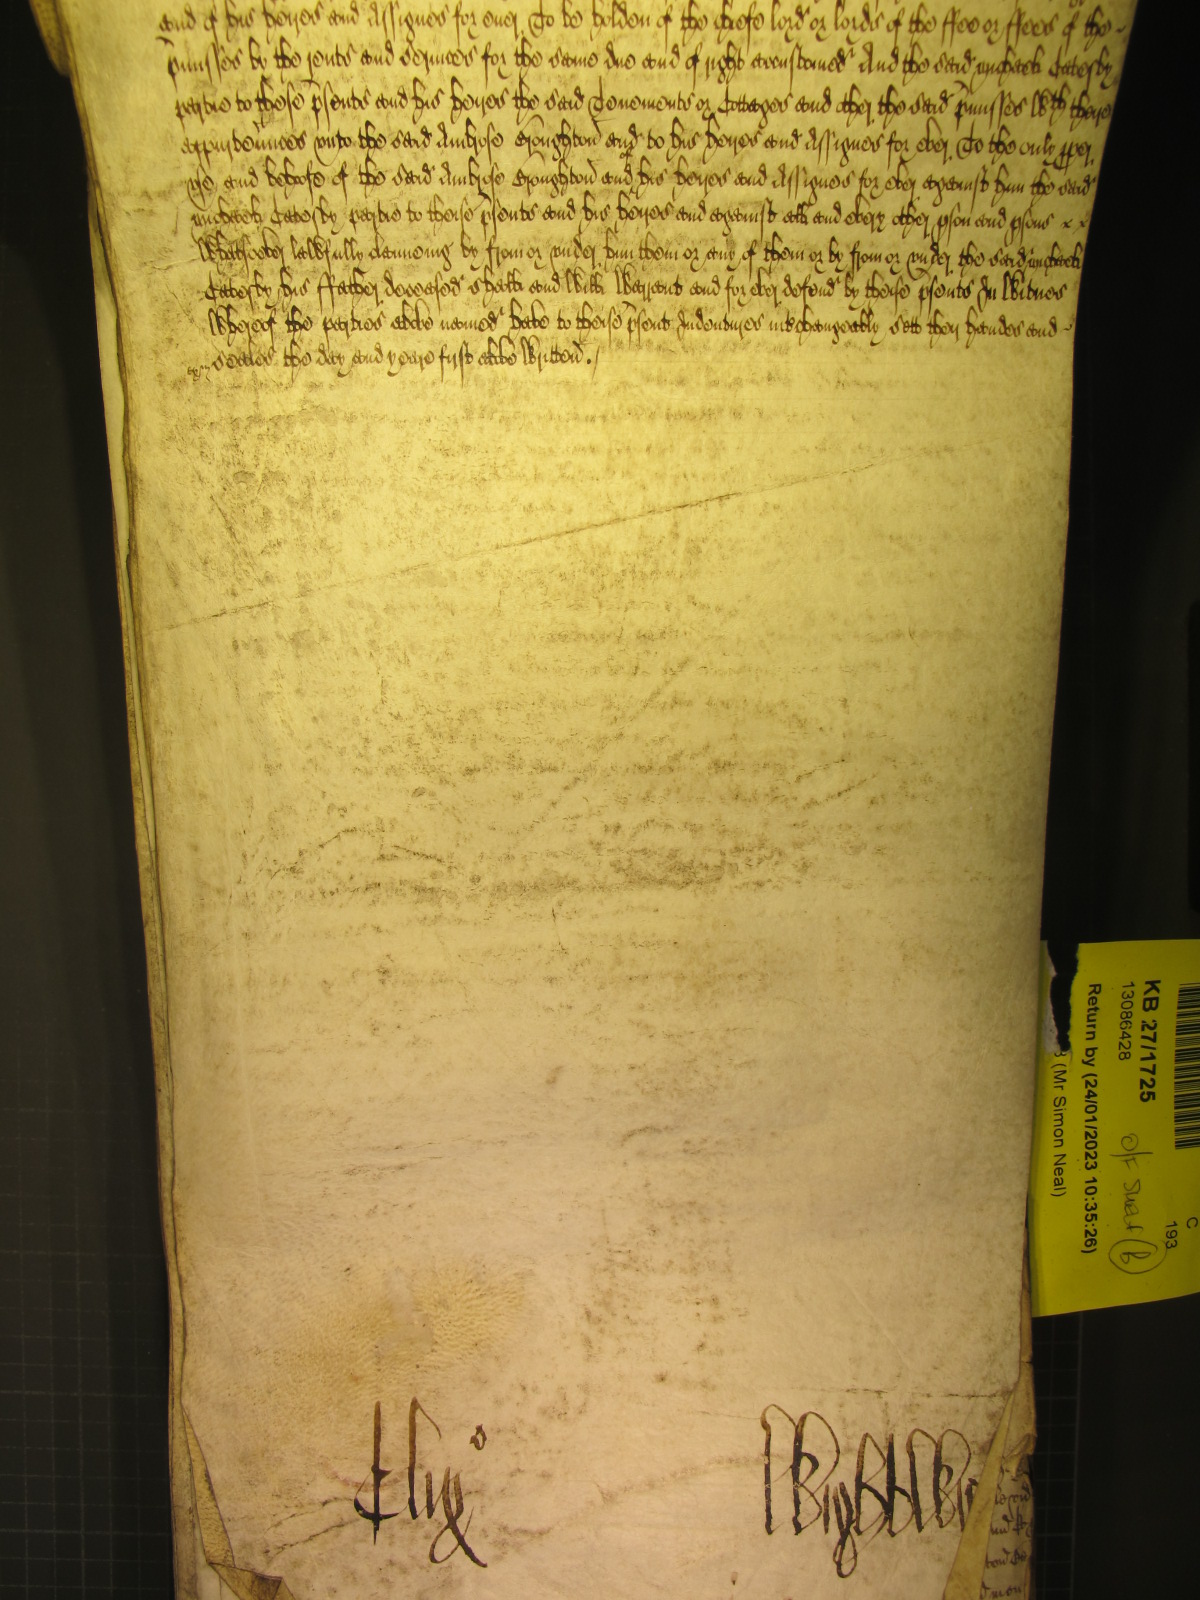 and of his heyres and Assignes for euer To be holden of the chefe lord or lords of the ffee or ffees of the
pmisses by the rents and seruices for the same due and of right accustomed And the said Catesby
partie to these psents and his heyres the said Tenements or Cottages and other the said pmisses wth there
appurtennces vnto the said Ambrose and to his heyres and Assignes for ever To the only pper
vse and behofe of the said Ambrose and of his heyres and Assignes for ever against him the said
Catesby partie to these psents and his heyres and against all and every other pson and psons
whatsoever lawfully clameing by from or vnder him them or any of them or by from or vnder the said
Catesby his ffather deceased shall and will warrant and for ever defend by these psents In witnes
whereof the parties above named have to these psent Indentures interchangeably sett their handes and
seales the day and yeare first above written.
Eliz
KB 27/1725
13086428
Return by (24/01/2023 10:35:26)
(Mr Simon Neal)
C
193
O/F
(b)